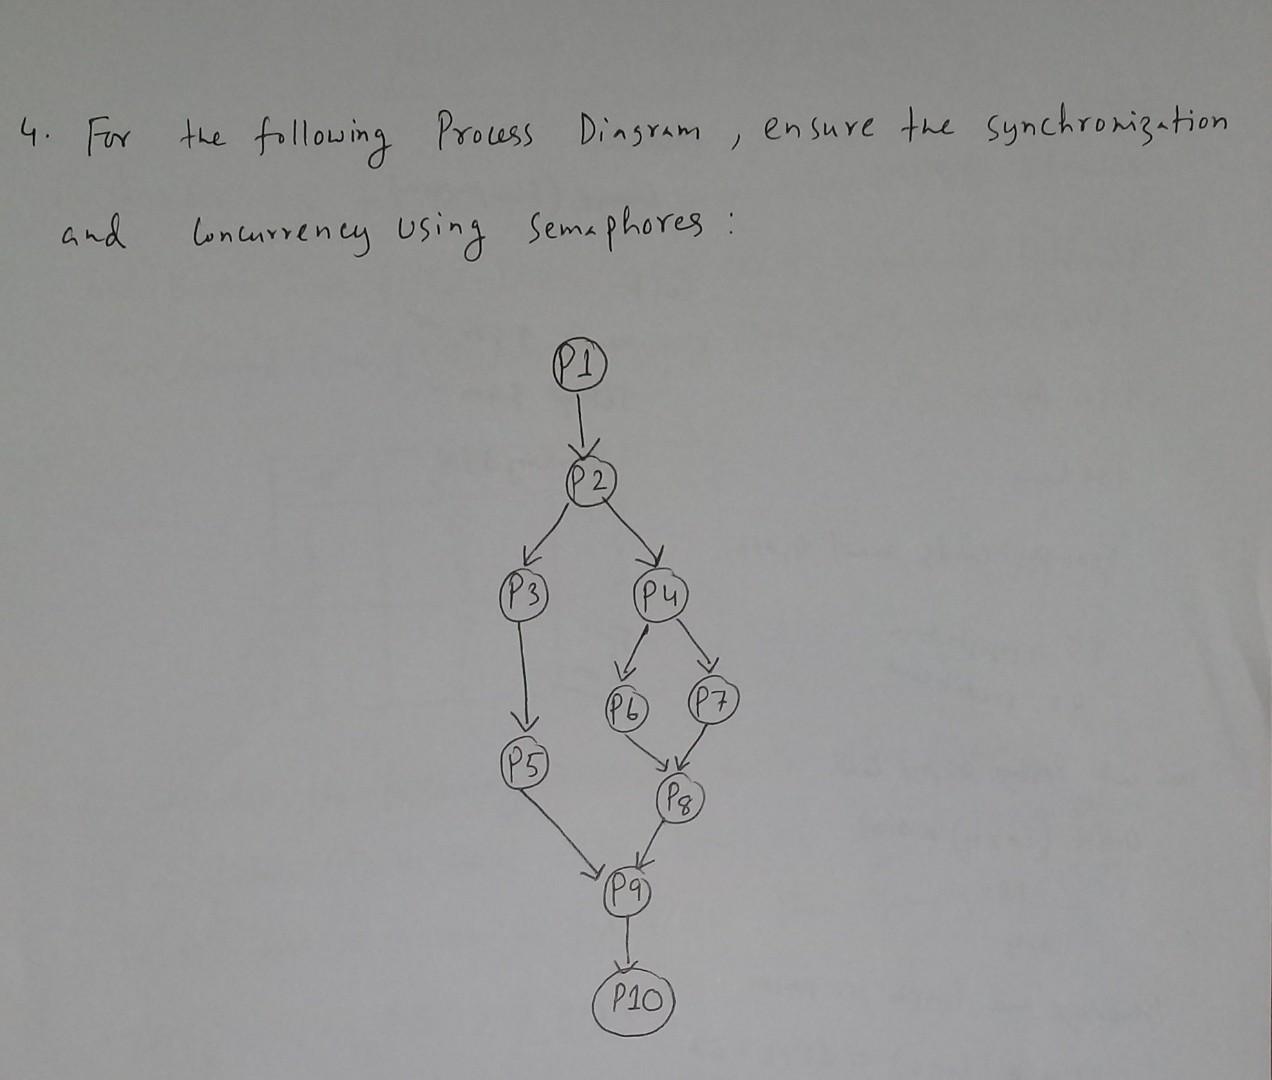 4. For the following Process Diagram, ensure the synchronization
and Concurrency using semaphores:
P1
P2
P3 P4
P6 P7
P5
P8
P9
P10